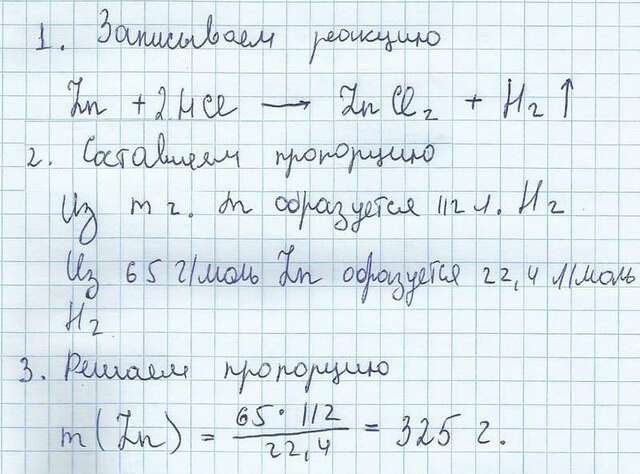 1. Записываем реакцию
Zn + 2HCl → ZnCl₂ + H₂↑
2. Составляем пропорцию
Из m г. Zn образуется 112 л. H₂
Из 65 г/моль Zn образуется 22,4 л/моль
H₂
3. Решаем пропорцию
m(Zn) = 65·112 / 22,4 = 325 г.